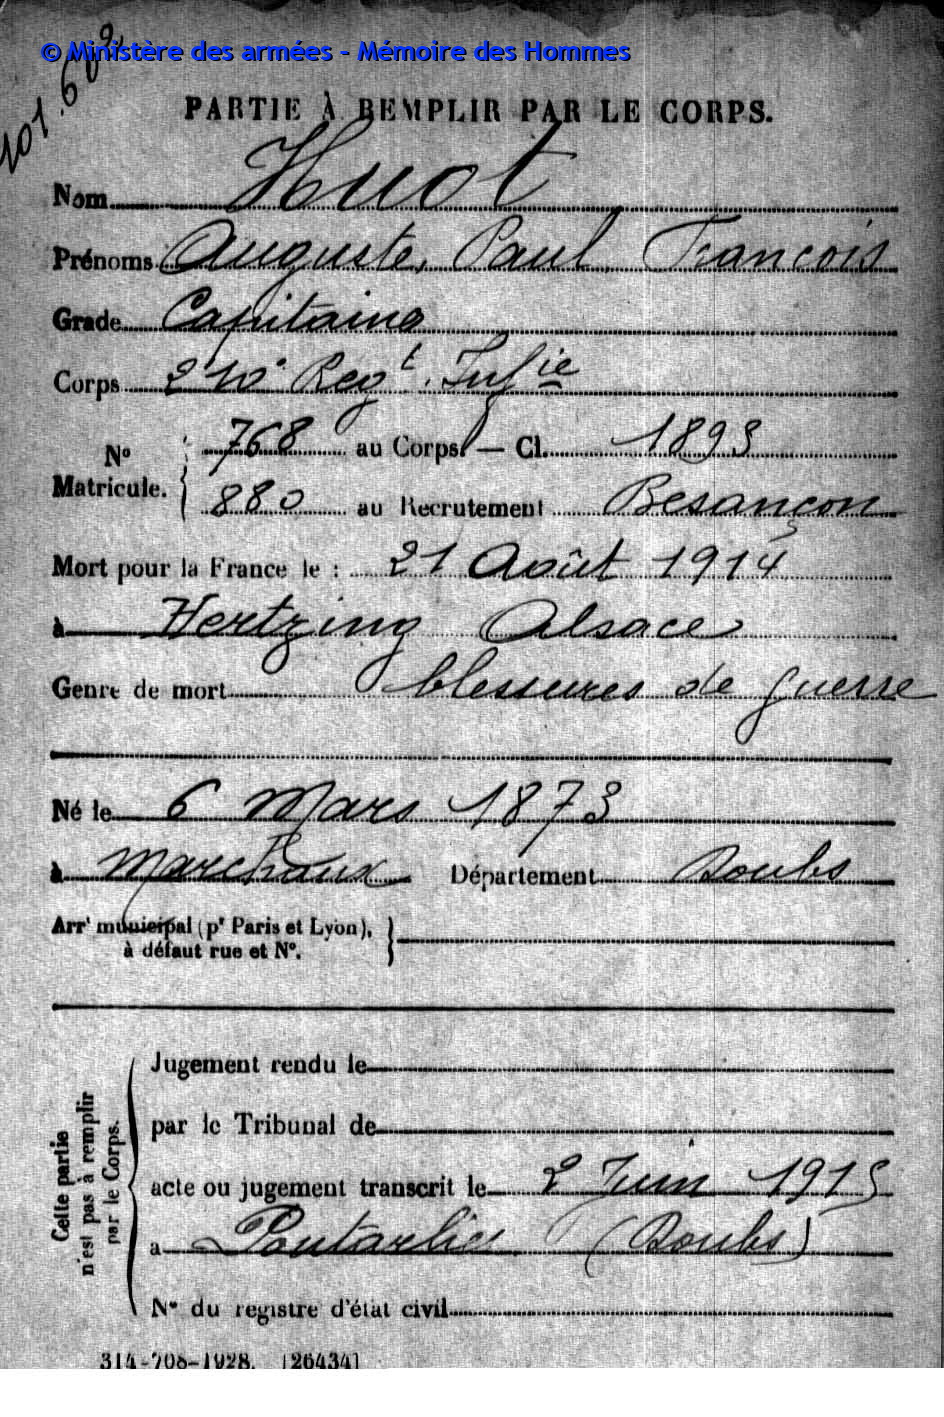 © Ministère des armées - Mémoire des Hommes
101.602
PARTIE À REMPLIR PAR LE CORPS.
Nom Huot
Prénoms Auguste, Paul, François
Grade Capitaine
Corps 210e Regt. Infie
No Matricule. 768 au Corps. — Cl. 1893
880 au Recrutement Besançon
Mort pour la France le : 21 Août 1914
à Hertzing Alsace
Genre de mort blessures de guerre
Né le 6 Mars 1873
à Marchaux Département Doubs
Arrt municipal (pr Paris et Lyon),
à défaut rue et No.
Cette partie
n'est pas à remplir
par le Corps.
Jugement rendu le
par le Tribunal de
acte ou jugement transcrit le 2 Juin 1915
à Pontarlier (Doubs)
No du registre d'état civil
314-708-1928. [26434]